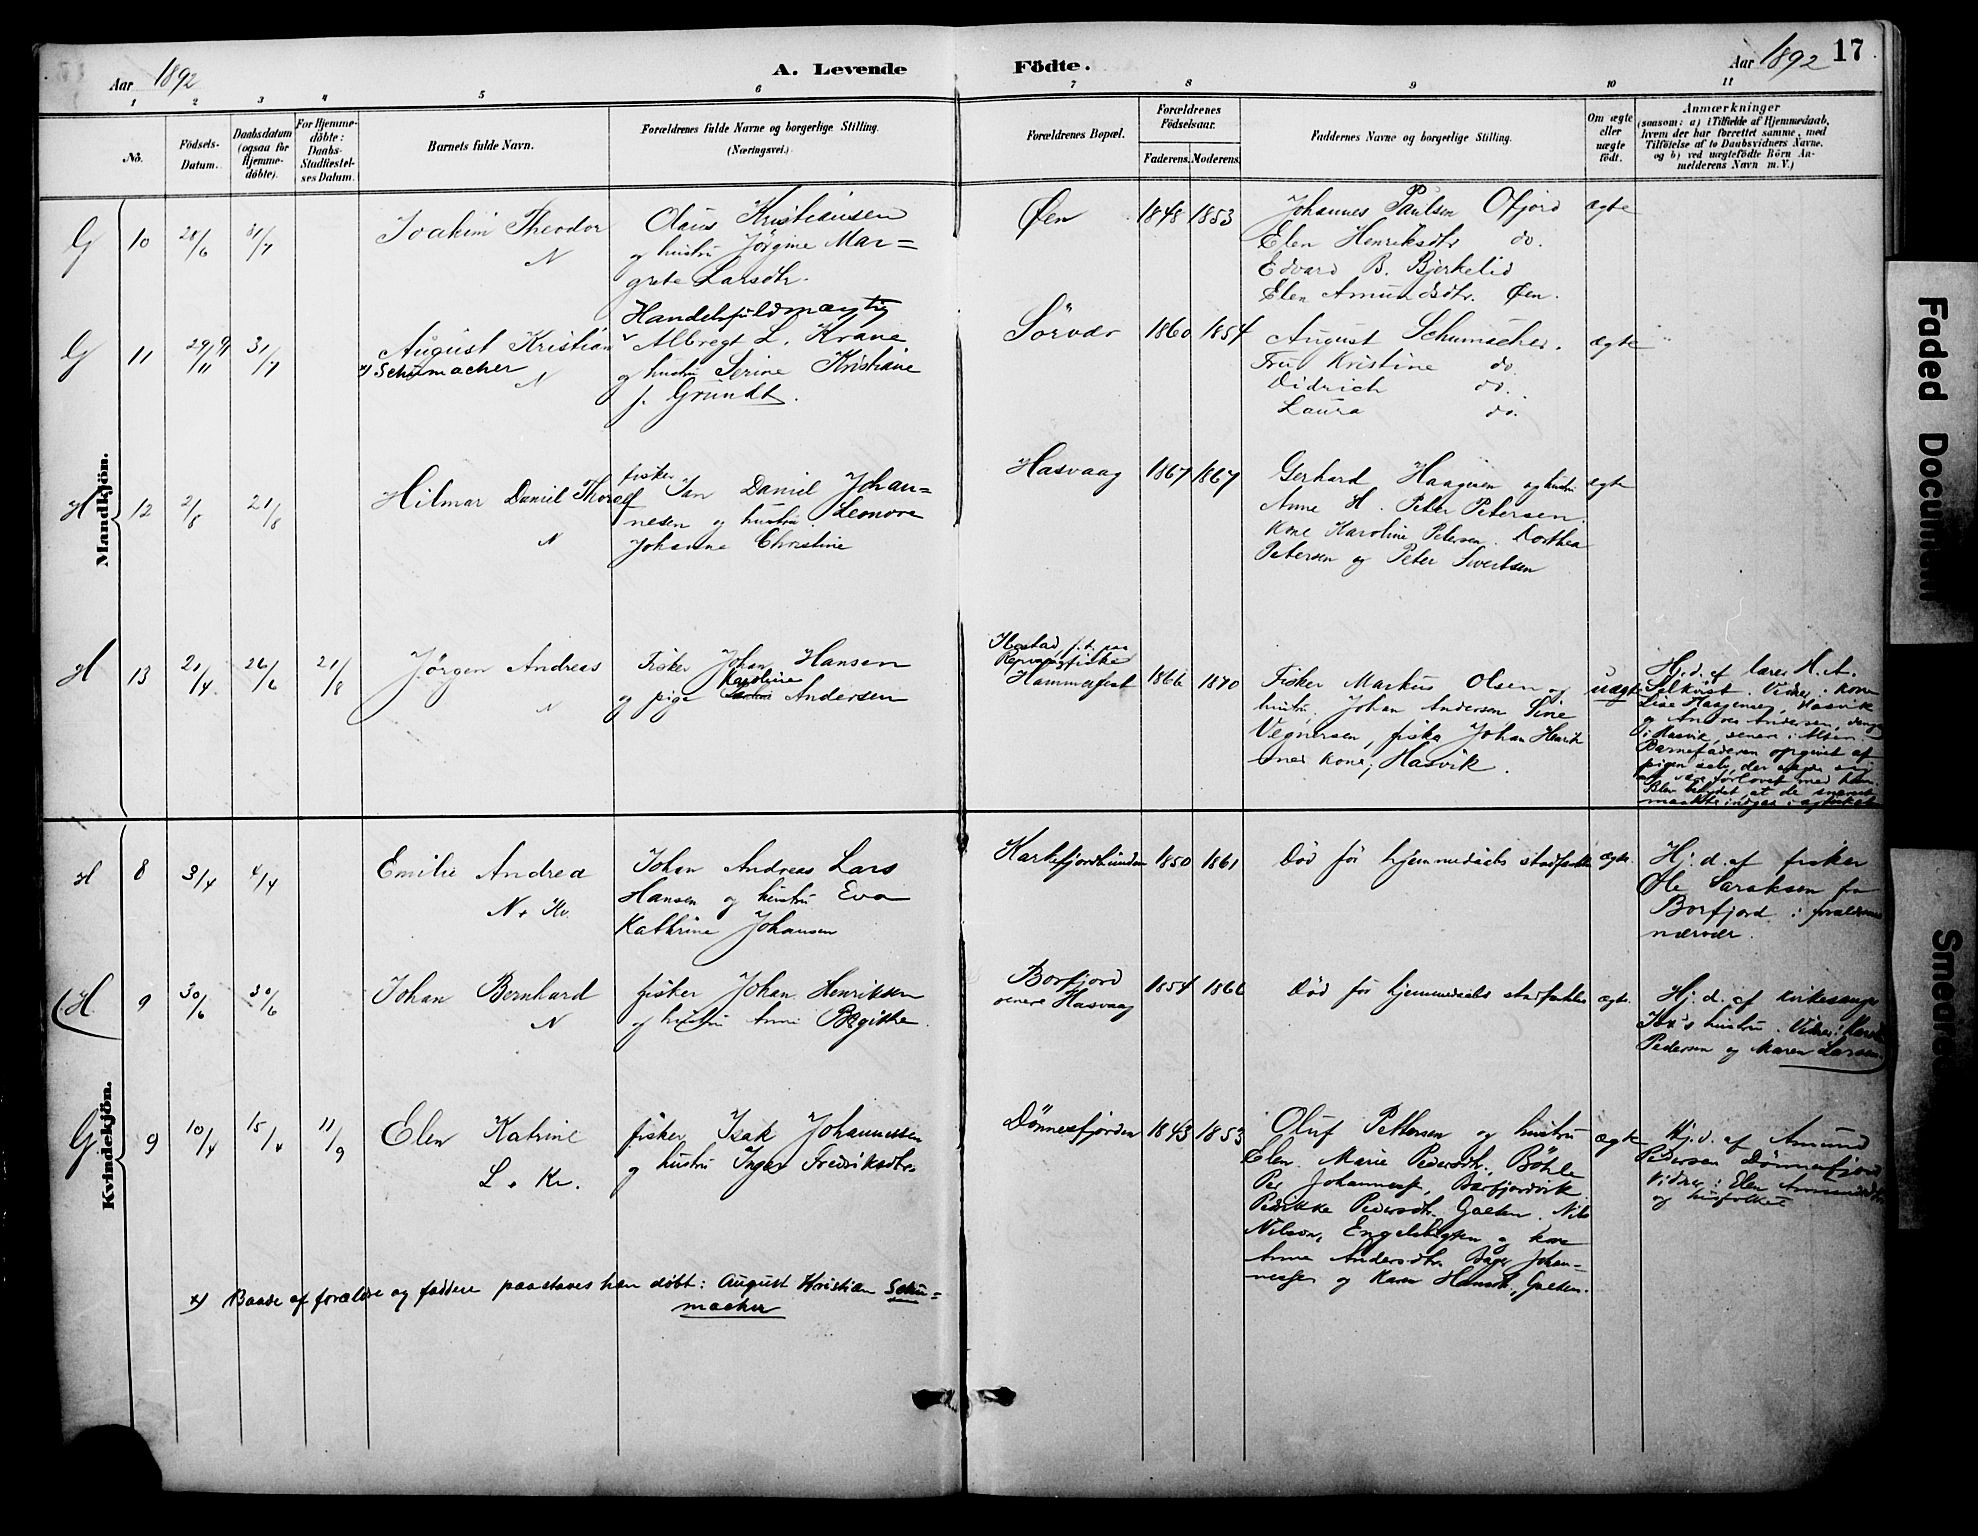 Aar 1892
A. Levende Fødte.
Aar 1892 17
1 2 3 4 5 6 7 8 9 10 11
No.
Födsels-
Datum.
Daabsdatum
(ogsaa for
Hjemme-
döbte).
For Hjemme-
döbte:
Daabs-
Stadfæstel-
ses Datum.
Barnets fulde Navn.
Forældrenes fulde Navne og borgerlige Stilling.
(Næringsvei.)
Forældrenes Bopæl.
Forældrenes
Födselsaar.
Faderens. Moderens.
Faddernes Navne og borgerlige Stilling.
Om ægte
eller
uægte
födt.
Anmærkninger
(saasom: a) i Tilfælde af Hjemmedaab,
hvem der har forrettet samme, med
Tilföielse af to Daabsvidners Navne,
og b) ved uægtefödte Börn An-
melderens Navn m. V.)
Mandkjön.
G 10 28/6 31/7
Joakim Theodor
N
Olaus Kristiansen
og hustru Jørgine Mar=
grete Larsdtr.
Øen 1848 1853
Johannes Paulsen Ofjord
Elen Henriksdtr do.
Edvard B. Bjerkelid
Elen Amundsdtr. Øen.
ægte
G 11 31/7
August Kristian
x) Schumacher
N
Handelsfuldmægtig
Albregt L. Krane
og hustru Serine Kristiane
f. Grundt.
Sörvær 1860 1854
August Schumacher.
Fru Kristine do.
Didrich do.
Laura do.
ægte
H 12 2/8 21/8
Hilmar Daniel Thoralf
N
fisker Jan Daniel Johan=
nesen og hustru Leonore
Johanne Christine
Hasvaag 1867 1867
Gerhard Haagensen og hustru
Anne H. Peter Petersen.
Kone Karoline Petersen. Dorthea
Petersen og Peter Sivertsen
ægte
H 13 21/4 26/6 21/8
Jørgen Andreas
N
Fisker Johan Hansen
Karoline
og pige Andersen
Hammerfest 1866 1870
Fisker Markus Olsen og
hustru, Johan Andersen Sine
Vegnersen, fisker Johan Henrik
sens kone, Hasvik.
uægte
Hj.d. af lærer H. A.
Vidner: kone
Lise Haagensen, Hasvik
og Andreas Andersen,
i Hasvik, senere i
Barnefaderen opgivet af
pigen selv, der
være forlovet med ham.
Blev betydet, at de snarest
Kvindekjön.
H 8 3/4 4/4
Emilie Andrea
N. Kv.
Johan Andreas Lars
Hansen og hustru Eva
Kathrine Johansen
1850 1861
Død før hjemmedaabs stadfæstelse
ægte.
Hj. d. af fisker
Ole Saraksen fra
Borfjord i forældrenes
nærvær.
(H 9 30/6 30/6
Johan Bernhard
N
fisker Johan Henriksen
og hustru Anne Bergitthe
Borfjord
senere Hasvaag
1854 1866
Død før hjemmedaabs stadfæstelse
ægte.
Hj. d. af kirkesanger
hustru. Vidner:
Pedersen og Maren Larsen)
G 9 10/4 15/4 11/9
Elen Katrine
L. Kv.
fisker Isak Johannessen
og hustru Inger Fredriksdtr.
Dönnesfjorden 1843 1853
Oluf Pettersen og hustru
Elen Marie Pedersdtr. Böhle
Per Johanness., Barfjordvik
Pedrikke Pedersdtr. Galten. Nils
Nilsen, og kone
Anne Andersdtr. Johan-
nesse og Karen Hansdtr., Galten.
ægte
Hj.d. af Amund
Pedersen Dönnesfjord
Vidner: Elen Amundsdtr.
og husfolket
x) Baade af forældre og faddere paastaaes han døbt: August Kristian Schu=
macher
Faded Document
Smeared